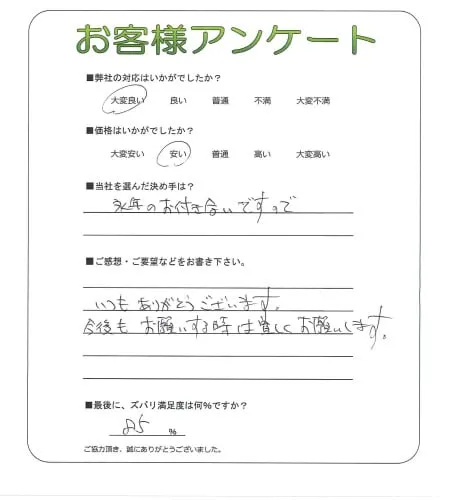 お客様アンケート
■弊社の対応はいかがでしたか？
大変良い 良い 普通 不満 大変不満
■価格はいかがでしたか？
大変安い 安い 普通 高い 大変高い
■当社を選んだ決め手は？
永年のお付き合いですので
■ご感想・ご要望などをお書き下さい。
いつもありがとうございます。
今後もお願いする時は宜しくお願いします。
■最後に、ズバリ満足度は何%ですか？
85 %
ご協力頂き、誠にありがとうございました。